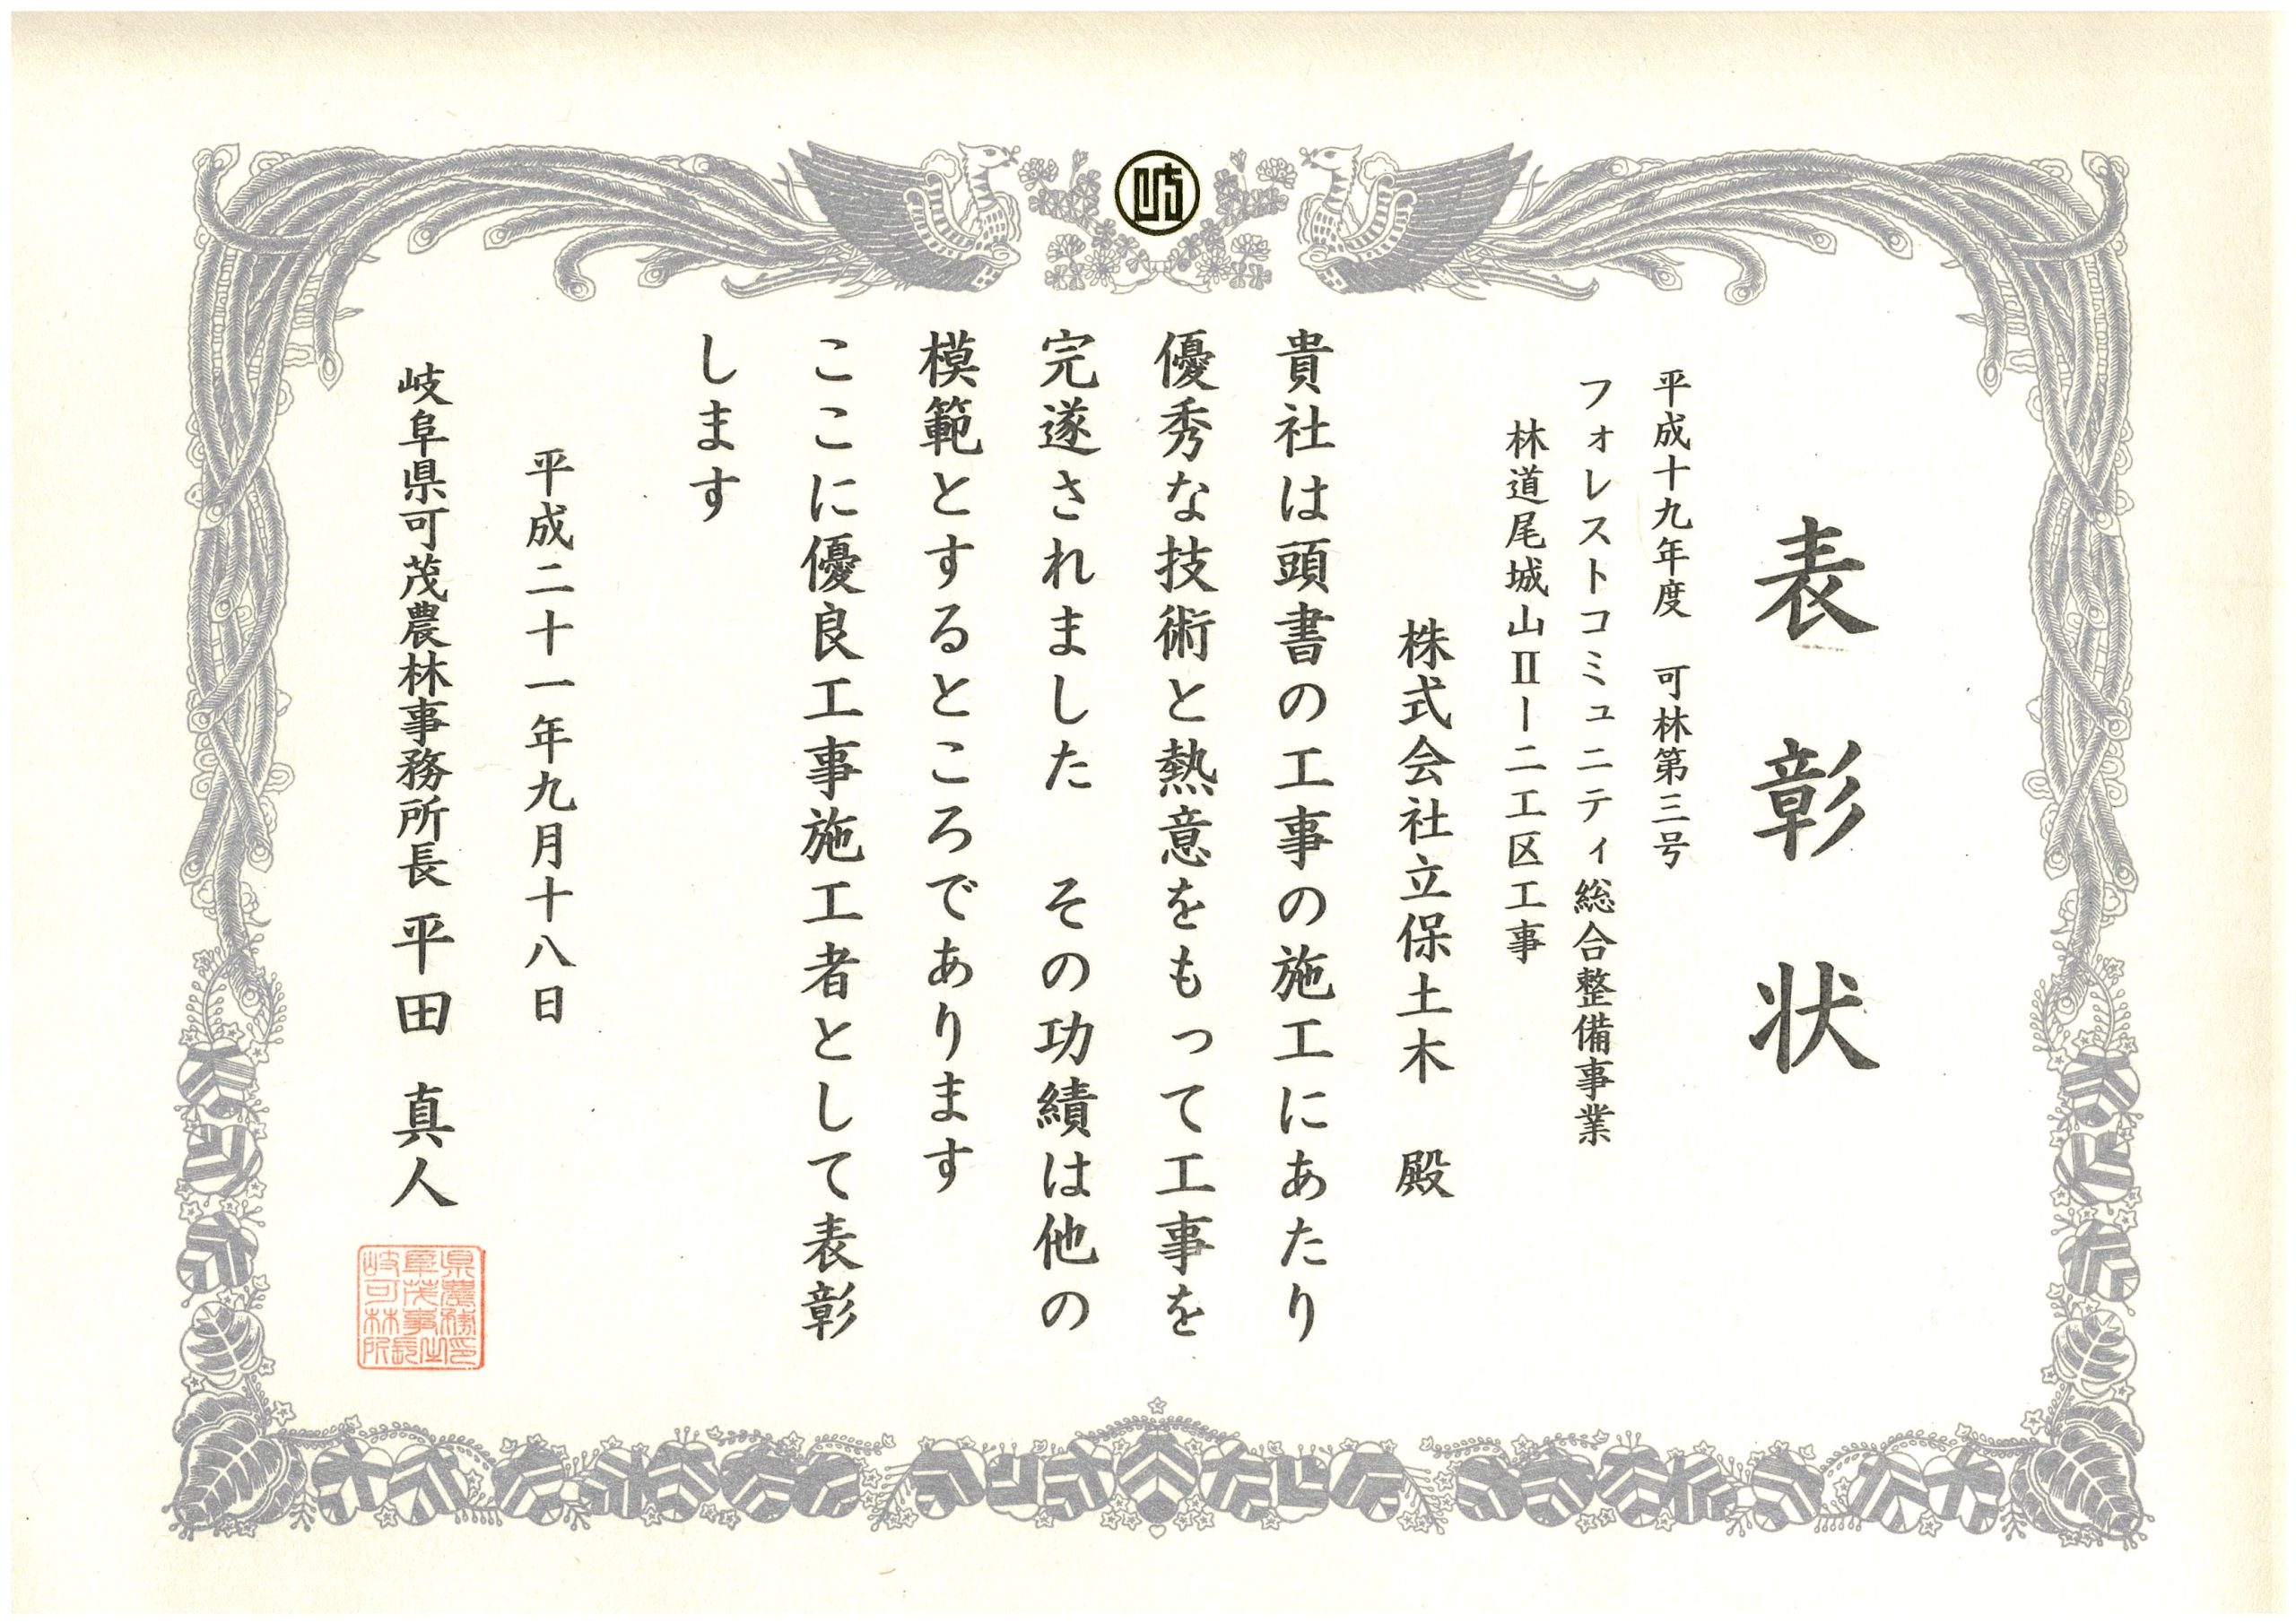 岐
表彰状
平成十九年度　可林第三号
フォレストコミュニティ総合整備事業
林道尾城山Ⅱー二工区工事
株式会社立保土木　殿
貴社は頭書の工事の施工にあたり
優秀な技術と熱意をもって工事を
完遂されました　その功績は他の
模範とするところであります
ここに優良工事施工者として表彰
します
平成二十一年九月十八日
岐阜県可茂農林事務所長　平田　真人
岐阜県
可茂農
林事務
所長之印